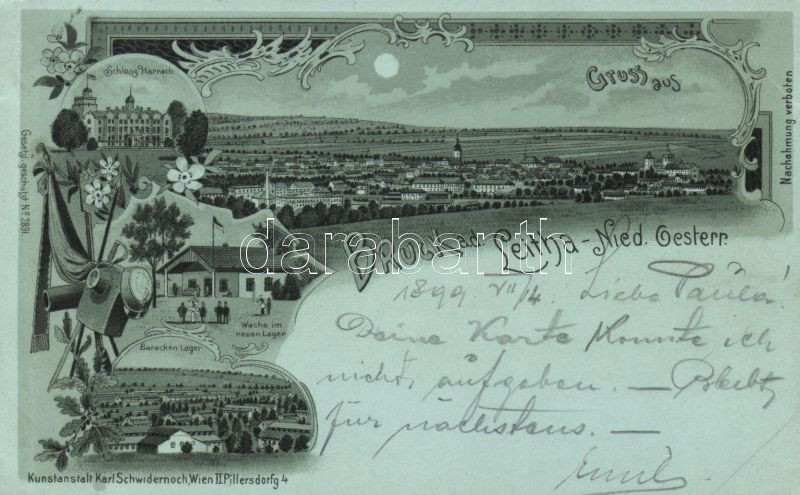 Schloss Harrach
Gruss aus
BRUCK a.d. Leitha - Nied. Oesterr.
Nachahmung verboten
Gesetzl. geschützt No 2891
darabanth
Wache im
neuen Lager
Baracken-Lager
1899 VII/4 Liebe Paula!
Deine Karte konnte ich
nicht aufgeben. — Bleibt
für nächstens. —
Emil
Kunstanstalt Karl Schwidernoch, Wien II. Pillersdorfg 4